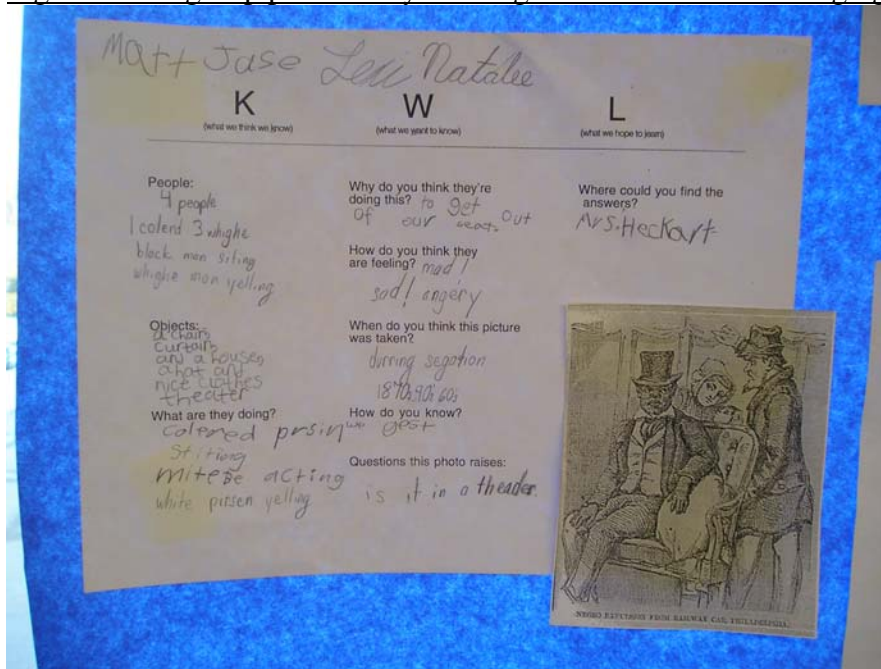 Matt Jase Lexi Natalee
K
(what we think we know)
W
(what we want to know)
L
(what we hope to learn)
People:
4 people
1 colend 3 whighe
black man siting
whighe man yelling
Objects:
a chair,
curtain,
and a houses,
a hat and
nice clothes
theater
What are they doing?
colered prsin
stiting
mitebe acting
white pirsen yelling
Why do you think they're
doing this? to get
of our seats out
How do you think they
are feeling? mad!
sad! angery
When do you think this picture
was taken?
durring segation
1870s 90s 60s
How do you know?
we gest
Questions this photo raises:
is it in a theader.
Where could you find the
answers?
Mrs. Heckart
NEGRO EXPULSION FROM RAILWAY CAR, PHILADELPHIA.